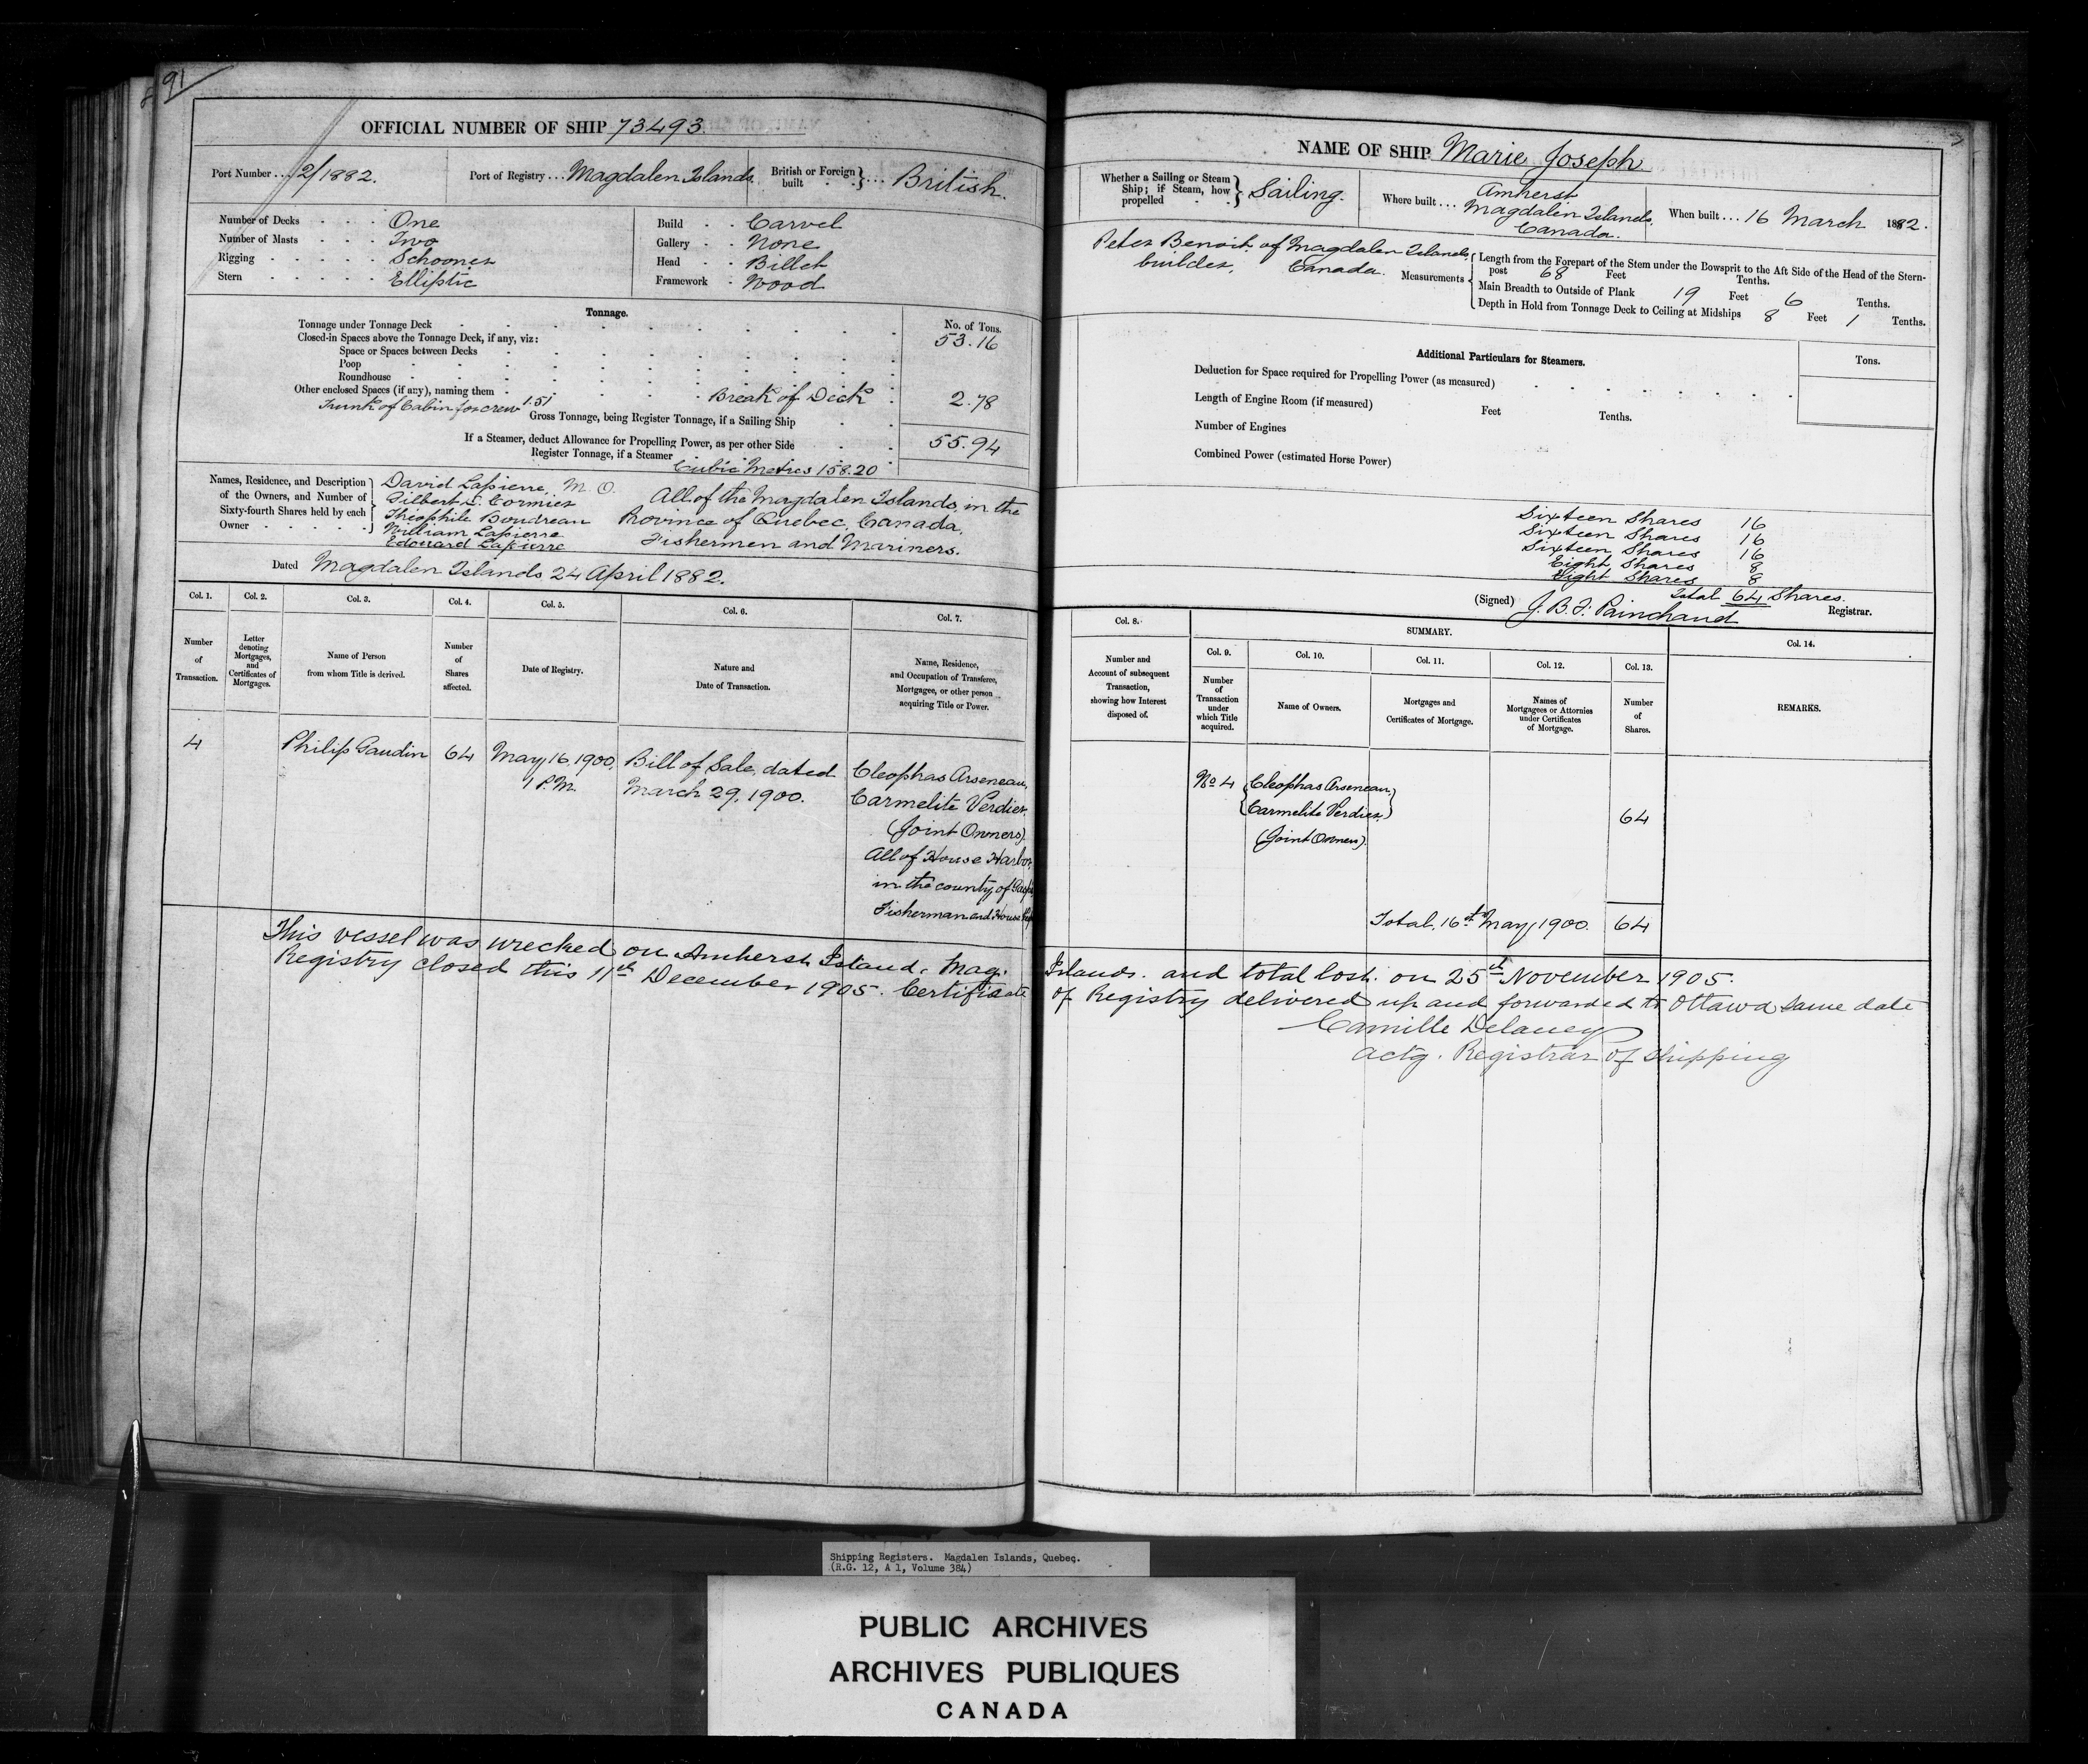 91
OFFICIAL NUMBER OF SHIP 73493.
Port Number ... 2/1882.
Port of Registry ... Magdalen Islands.
British or Foreign built ... British.
Number of Decks One
Number of Masts Two
Rigging Schooner
Stern Elliptic
Build Carvel
Gallery None
Head Billet
Framework Wood
Tonnage.
No. of Tons.
Tonnage under Tonnage Deck 53.16
Closed-in Spaces above the Tonnage Deck, if any, viz:
Space or Spaces between Decks
Poop
Roundhouse
Other enclosed Spaces (if any), naming them Break of Deck 2.78
Trunk of Cabin for crew 1.51
Gross Tonnage, being Register Tonnage, if a Sailing Ship
If a Steamer, deduct Allowance for Propelling Power, as per other Side 55.94
Register Tonnage, if a Steamer
Cubic Metres 158.20
Names, Residence, and Description of the Owners, and Number of Sixty-fourth Shares held by each Owner
David Lapierre, M.O.
Gilbert D. Cormier
Théophile Boudreau
William Lapierre
Edouard Lapierre
All of the Magdalen Islands, in the
Province of Quebec, Canada,
Fishermen and Mariners.
Dated Magdalen Islands 24 April 1882.
Col. 1. Col. 2. Col. 3. Col. 4. Col. 5. Col. 6. Col. 7.
Number of Transaction.
Letter denoting Mortgages, and Certificates of Mortgages.
Name of Person from whom Title is derived.
Number of Shares affected.
Date of Registry.
Nature and Date of Transaction.
Name, Residence, and Occupation of Transferee, Mortgagee, or other person acquiring Title or Power.
4 Philip Gaudin 64
May 16, 1900,
1 P.M.
Bill of Sale, dated
March 29, 1900.
Cleophas Arseneau,
Carmelite Verdier,
(Joint Owners)
All of House Harbor,
in the county of
Fisherman and House
This vessel was wrecked on Amherst Island, Mag.
Registry closed this 11th December 1905. Certificate
NAME OF SHIP Marie Joseph
Whether a Sailing or Steam Ship; if Steam, how propelled Sailing.
Where built ... Amherst
Magdalen Islands,
Canada.
When built ... 16 March 1882.
Peter Benoit of Magdalen Islands,
builder, Canada.
Measurements
Length from the Forepart of the Stem under the Bowsprit to the Aft Side of the Head of the Stern-
post 68 Feet Tenths.
Main Breadth to Outside of Plank 19 Feet 6 Tenths.
Depth in Hold from Tonnage Deck to Ceiling at Midships 8 Feet 1 Tenths.
Additional Particulars for Steamers.
Tons.
Deduction for Space required for Propelling Power (as measured)
Length of Engine Room (if measured) Feet Tenths.
Number of Engines
Combined Power (estimated Horse Power)
Sixteen Shares 16
Sixteen Shares 16
Sixteen Shares 16
Eight Shares 8
Eight Shares 8
Total 64 Shares.
(Signed) J. B. F. Painchaud Registrar.
Col. 8. SUMMARY. Col. 14.
Col. 9. Col. 10. Col. 11. Col. 12. Col. 13.
Number and Account of subsequent Transaction, showing how Interest disposed of.
Number of Transaction under which Title acquired.
Name of Owners.
Mortgages and Certificates of Mortgage.
Names of Mortgagees or Attornies under Certificates of Mortgage.
Number of Shares.
REMARKS.
No 4 Cleophas Arseneau,
Carmelite Verdier,
(Joint Owners)
64
Total, 16th May, 1900. 64
Islands. and total lost. on 25th November 1905.
of Registry delivered up and forwarded to Ottawa same date
Camille Delaney
Actg. Registrar of Shipping
Shipping Registers. Magdalen Islands, Quebec.
(R.G. 12, A 1, Volume 384)
PUBLIC ARCHIVES
ARCHIVES PUBLIQUES
CANADA